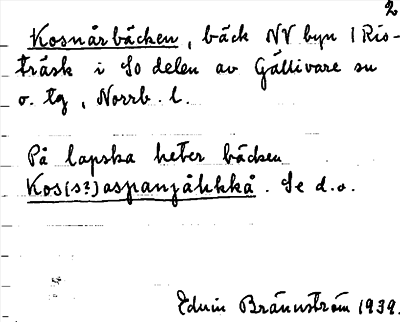 2
Kosnårbäcken, bäck NV byn i Ris-
träsk i SO delen av Gällivare sn
o. tg, Norrb. l.
På lapska heter bäcken
Kos(s?)aspanjåhkkå. Se d.o.
Edvin Brännström 1939.